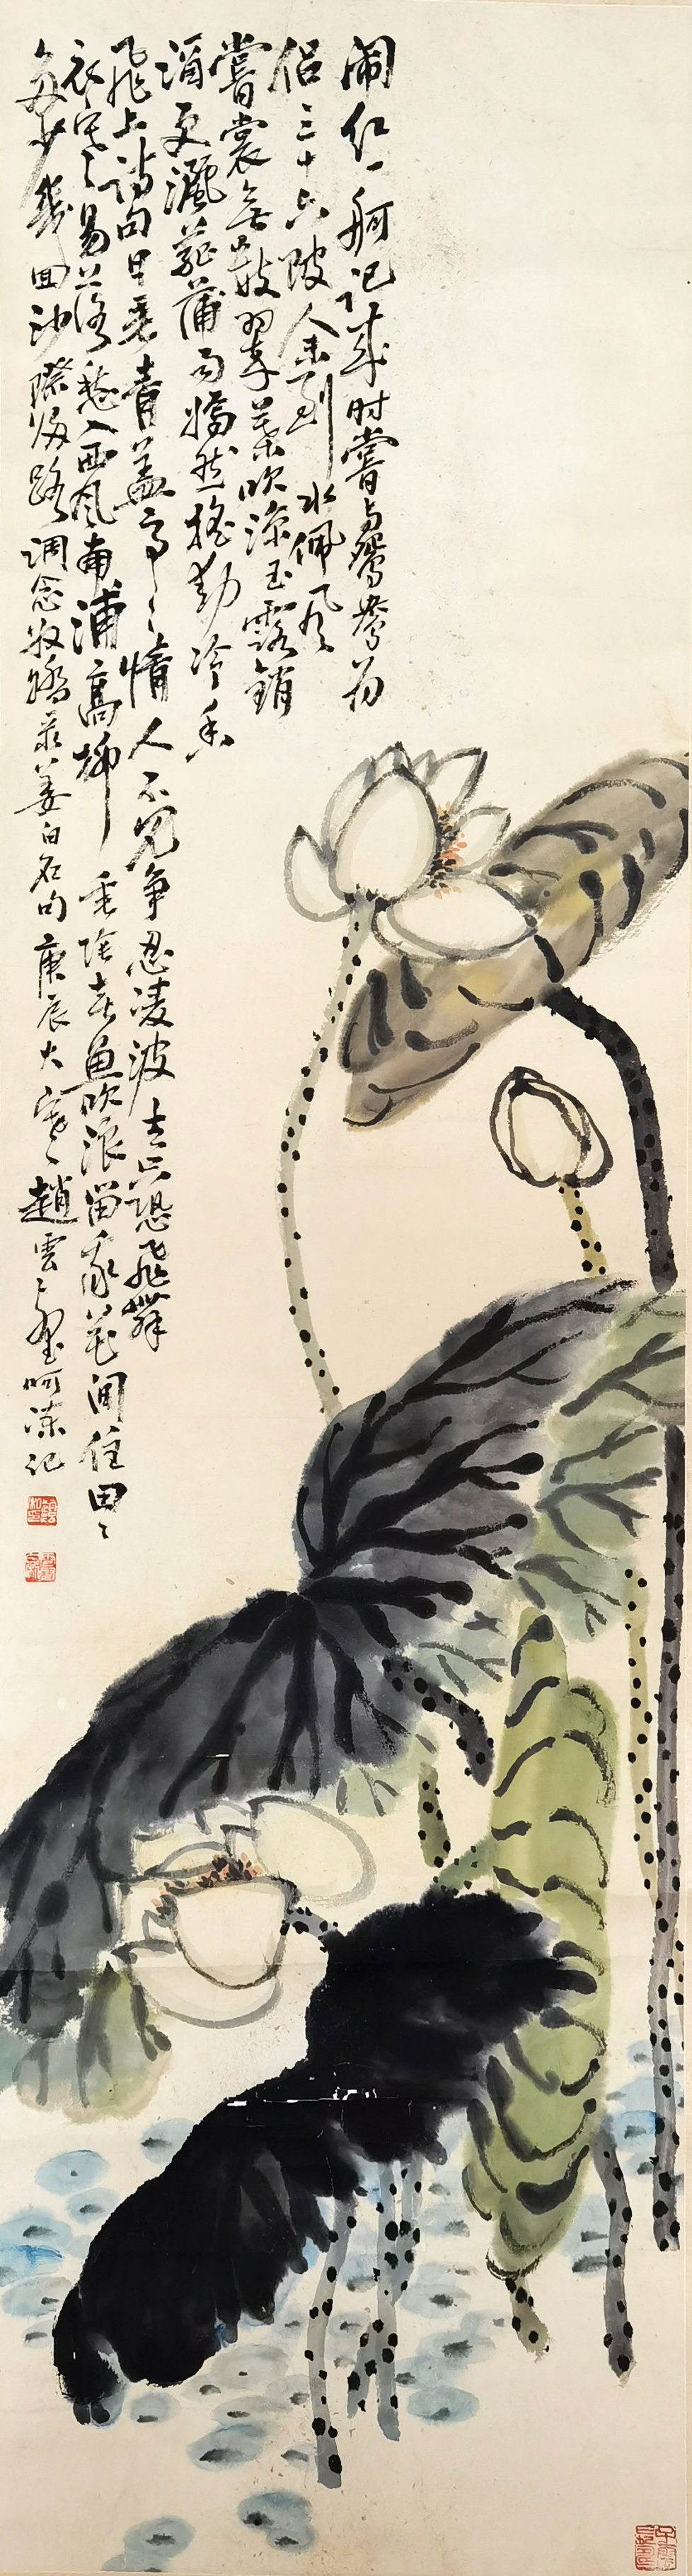 闹红一舸记來时嘗与鴛鴦为
侣三十六陂人未到水佩风
嘗裳無數翠葉吹涼玉露銷
酒更灑菰蒲雨嫣然摇動冷香
飛上詩句日暮青盖亭〻情人不見争忍凌波去只恐飛舞
衣寒易落愁入西风南浦高柳垂陰老魚吹浪留我花间住田〻
多少幾回沙際歸路調念奴嬌录姜白石句庚辰大寒趙雲壑呵凍記